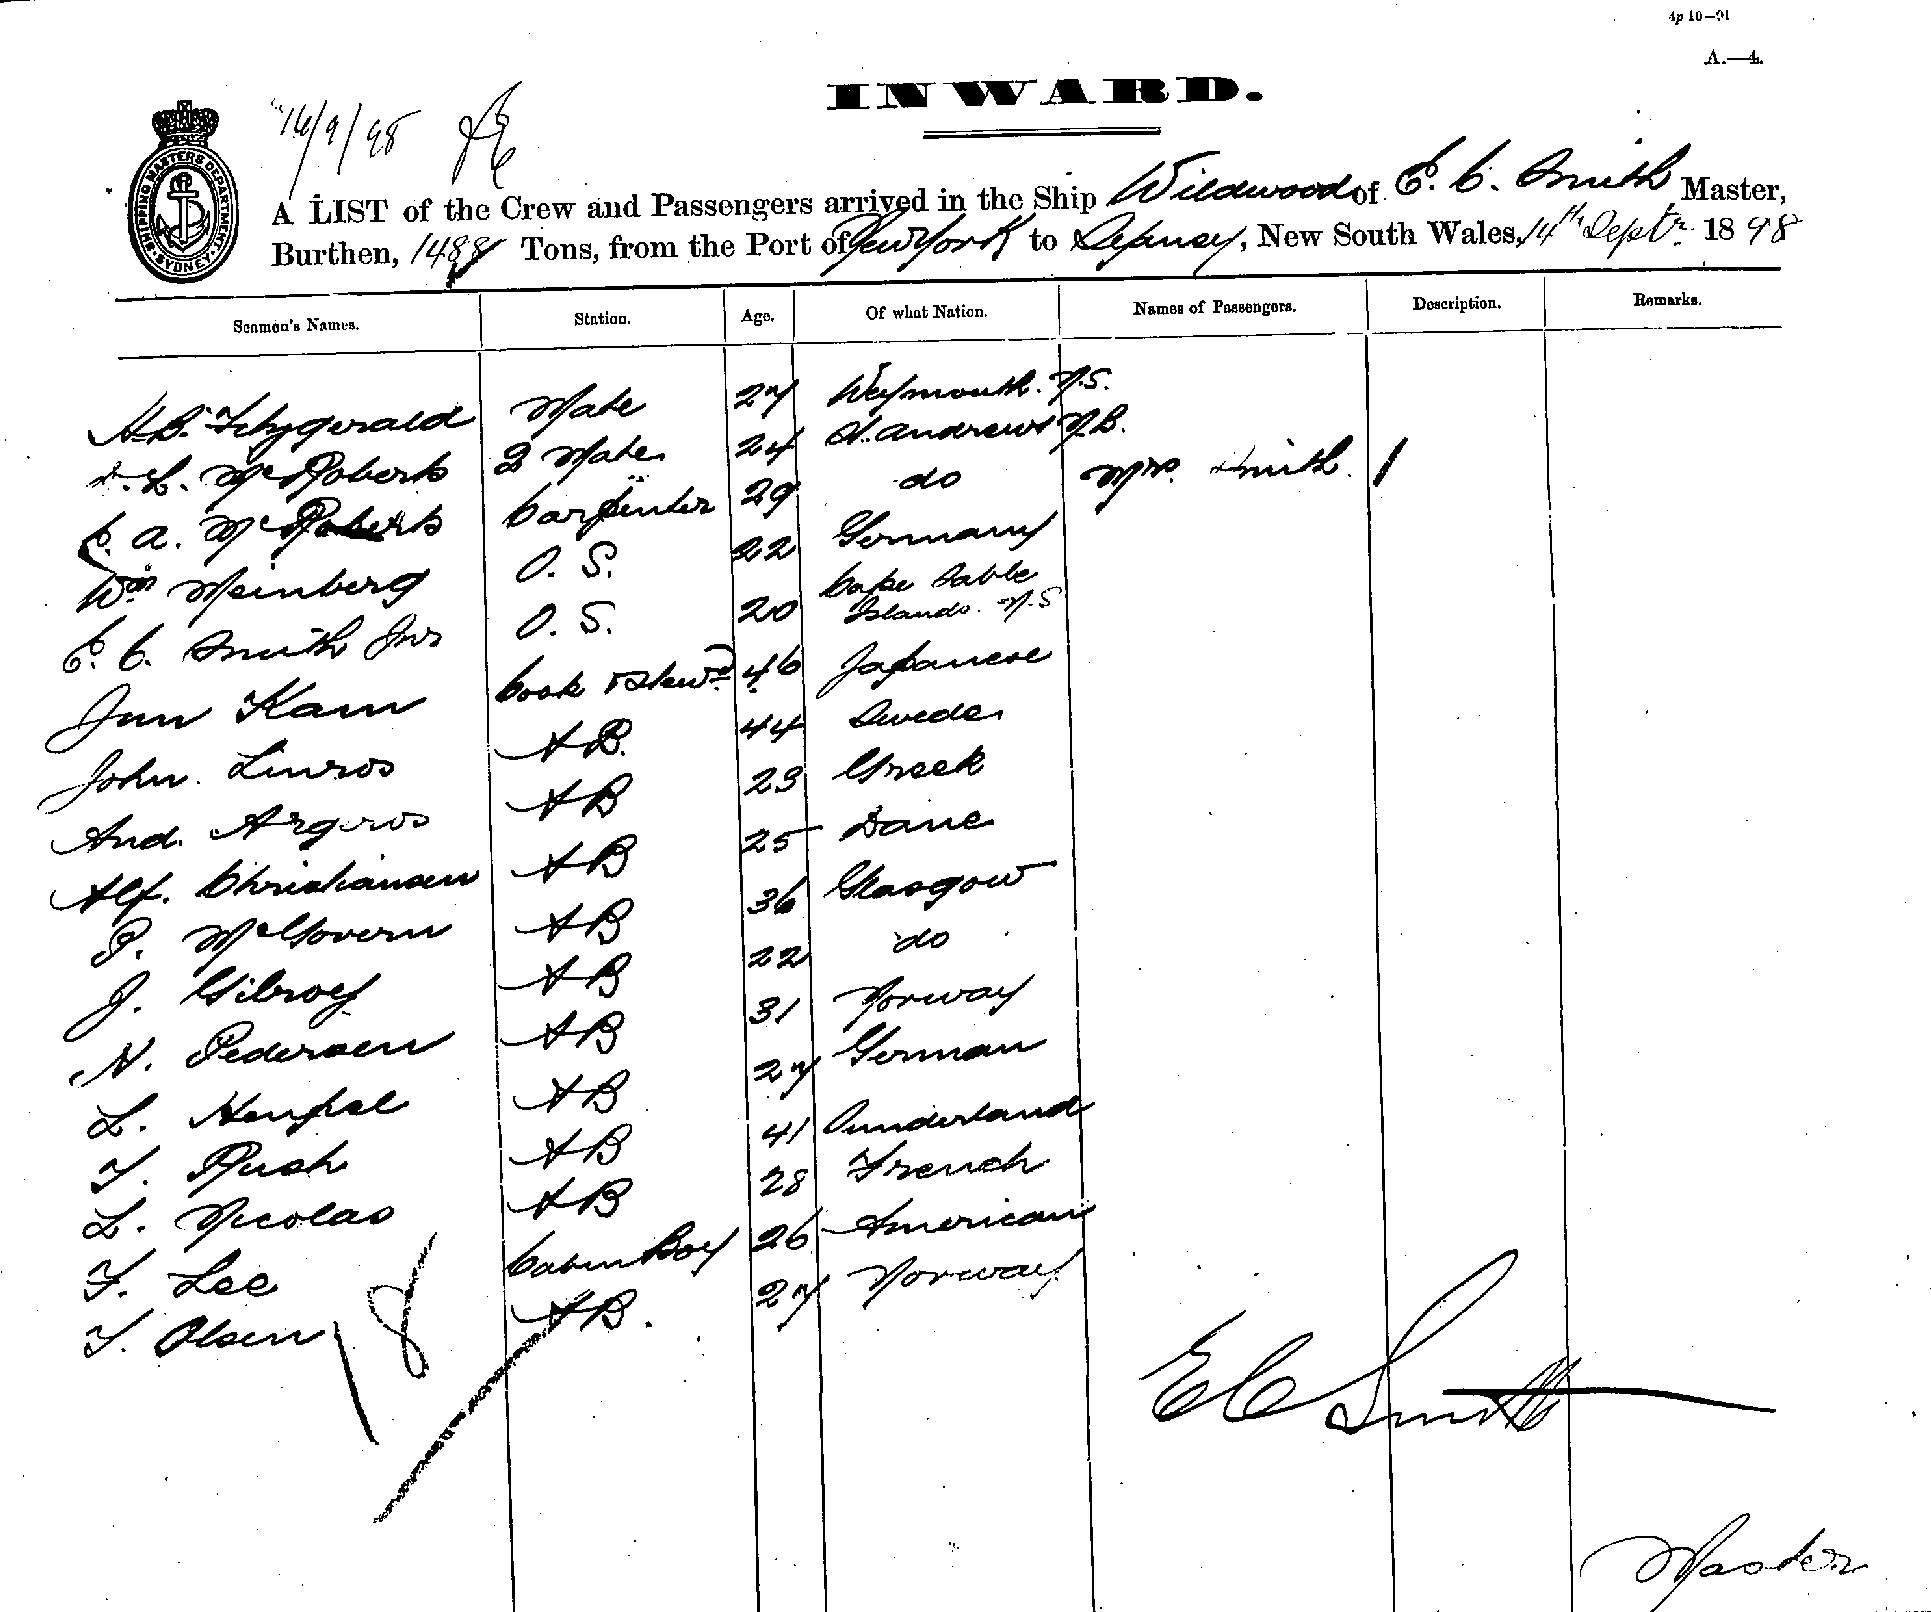 4p 10—91
A.—4.
INWARD.
16/9/98
SHIPPING MASTERS DEPARTMENT SYDNEY
A LIST of the Crew and Passengers arrived in the Ship Wildwood of E. C. Smith Master,
Burthen, 1488 Tons, from the Port of New York to Sydney, New South Wales, 14th Septr. 1898
Seamen's Names. Station. Age. Of what Nation. Names of Passengers. Description. Remarks.
H.B. Fitzgerald Mate 27 Weymouth. N.S.
L. McRoberts 2 Mate 24 St. Andrews N.B.
C. A. McRoberts Carpenter 29 do Mrs. Smith. 1
Wm Meinberg O. S. 22 Germany
E. C. Smith Jnr O. S. 20 Cape Sable Islands. N.S
Jun Kam Cook & Stewd 46 Japanese
John Linros AB. 44 Swede
And. Argeros AB 23 Greek
Alf. Christiansen AB 25 Dane
P. McGovern AB 36 Glasgow
J. Gilroy AB 22 do
N. Pedersen AB 31 Norway
L. Hempel AB 27 German
T. Rush AB 41 Sunderland
L. Nicolas AB 28 French
F. Lee Cabin Boy 26 American
T. Olsen AB. 27 Norway
18
E C Smith
Master